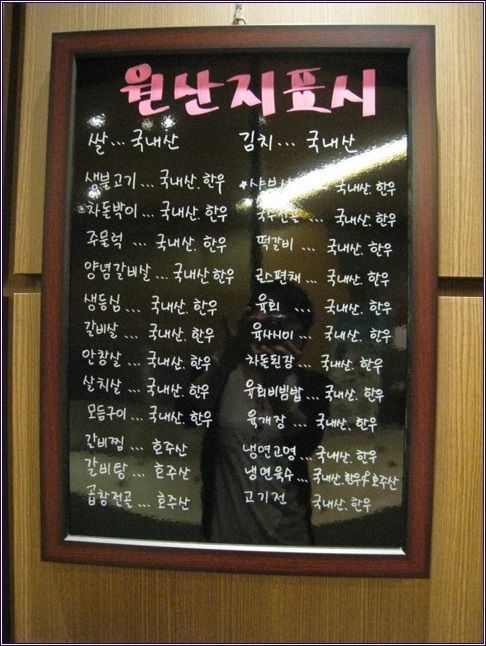 원산지표시
쌀... 국내산 김치... 국내산
생불고기... 국내산.한우 국내산.한우
차돌박이... 국내산.한우 국수전골 ... 국내산.한우
주물럭 ... 국내산.한우 떡갈비 ... 국내산.한우
양념갈비살... 국내산 한우 로스편채... 국내산.한우
생등심... 국내산. 한우 육회 ... 국내산.한우
갈비살... 국내산. 한우 육사시미... 국내산.한우
안창살... 국내산. 한우 차돌된장... 국내산.한우
살치살... 국내산. 한우 육회비빔밥... 국내산.한우
모듬구이... 국내산.한우 육개장 ... 국내산.한우
갈비찜... 호주산 냉면고명... 국내산.한우
갈비탕... 호주산 냉면육수... 국내산.한우&호주산
곱창전골... 호주산 고기전 국내산.한우